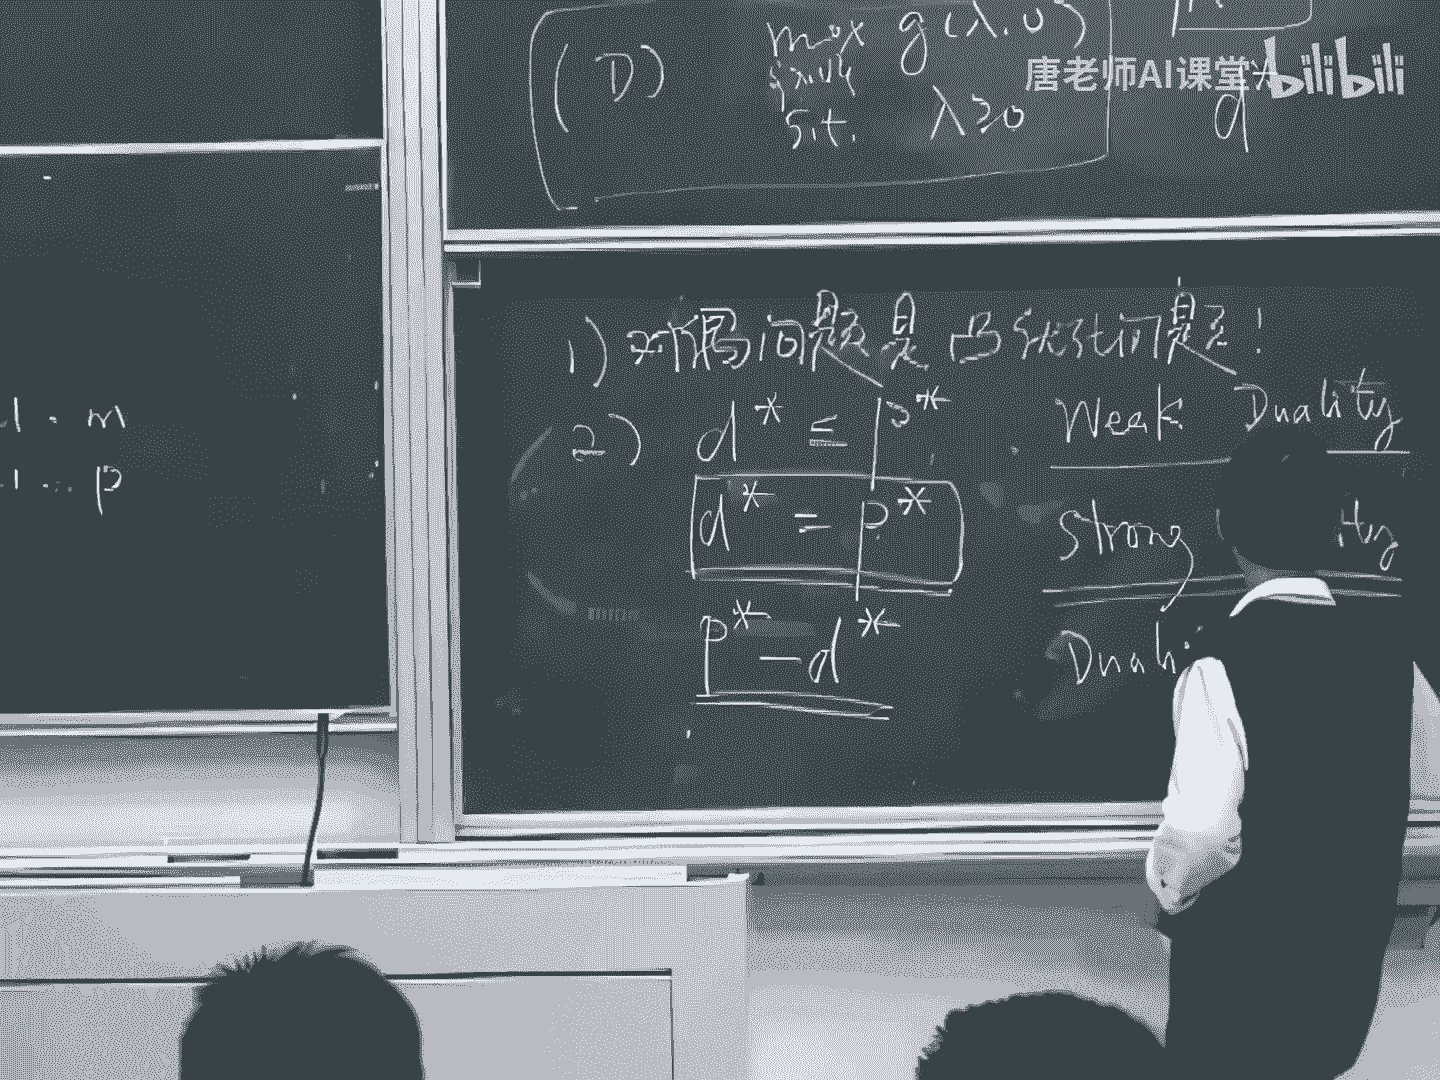 (D) max g(λ,υ)
s.t. λ≥0
d*
唐老师AI课堂 bilibili
1 . m
1 ... p
1) 对偶问题是凸优化问题!
2) d* ≤ p* Weak Duality
d* = p* Strong ity
p* - d* Duali